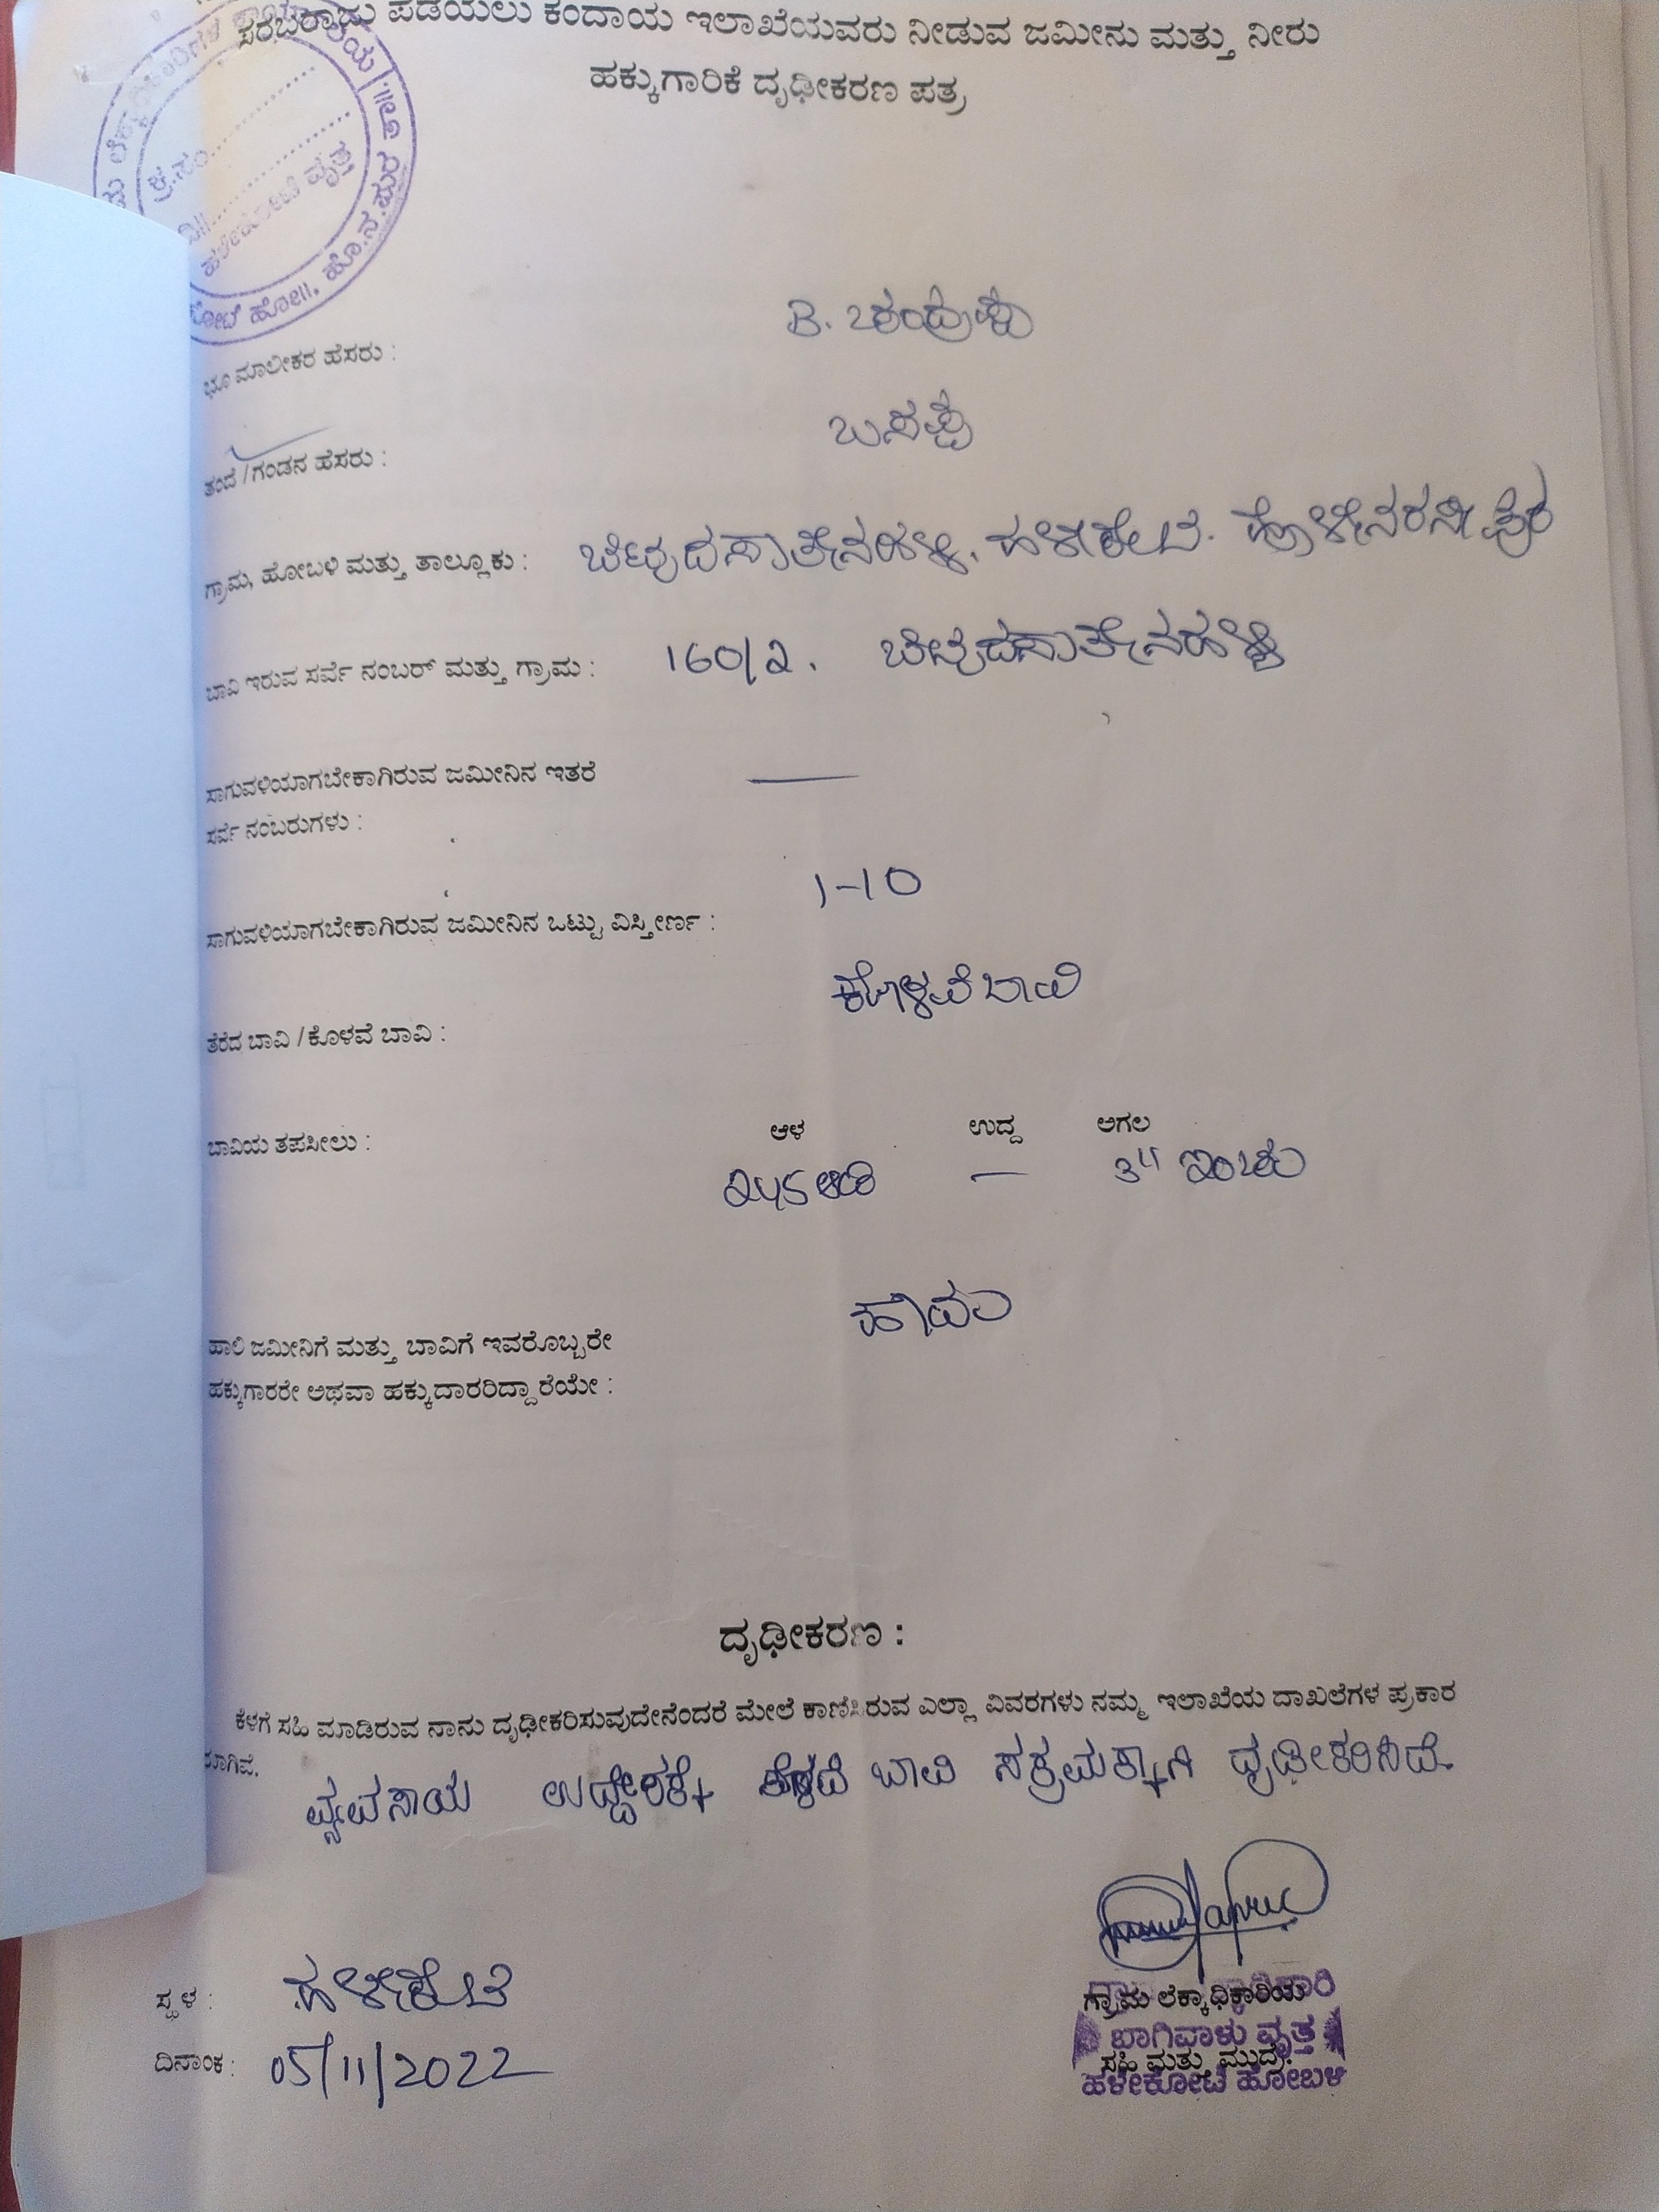 ಸರಬರಾಜು ಪಡೆಯಲು ಕಂದಾಯ ಇಲಾಖೆಯವರು ನೀಡುವ ಜಮೀನು ಮತ್ತು ನೀರು
ಹಕ್ಕುಗಾರಿಕೆ ದೃಢೀಕರಣ ಪತ್ರ
ಕ್ರ.ಸಂ.
ಹಳೇಕೋಟೆ ವೃತ್ತ
ಹೋ||. ಹೊ.ನ.ಪುರ ತಾ||.
ಭೂ ಮಾಲೀಕರ ಹೆಸರು : B. ಚಂದ್ರಪ್ಪ
ತಂದೆ /ಗಂಡನ ಹೆಸರು : ಬಸಪ್ಪ
ಗ್ರಾಮ, ಹೋಬಳಿ ಮತ್ತು ತಾಲ್ಲೂಕು : ಹಳೇಕೋಟೆ. ಹೊಳೇನರಸೀಪುರ
ಬಾವಿ ಇರುವ ಸರ್ವೆ ನಂಬರ್ ಮತ್ತು ಗ್ರಾಮ : 160/2.
ಸಾಗುವಳಿಯಾಗಬೇಕಾಗಿರುವ ಜಮೀನಿನ ಇತರೆ —
ಸರ್ವೆ ನಂಬರುಗಳು :
ಸಾಗುವಳಿಯಾಗಬೇಕಾಗಿರುವ ಜಮೀನಿನ ಒಟ್ಟು ವಿಸ್ತೀರ್ಣ : 1-10
ತೆರೆದ ಬಾವಿ /ಕೊಳವೆ ಬಾವಿ : ಕೊಳವೆ ಬಾವಿ
ಬಾವಿಯ ತಪಸೀಲು : ಆಳ ಉದ್ದ ಅಗಲ
245 ಅಡಿ — 3" ಇಂಚು
ಹೌದು
ಹಾಲಿ ಜಮೀನಿಗೆ ಮತ್ತು ಬಾವಿಗೆ ಇವರೊಬ್ಬರೇ
ಹಕ್ಕುಗಾರರೇ ಅಥವಾ ಹಕ್ಕುದಾರರಿದ್ದಾರೆಯೇ :
ದೃಢೀಕರಣ :
ಕೆಳಗೆ ಸಹಿ ಮಾಡಿರುವ ನಾನು ದೃಢೀಕರಿಸುವುದೇನೆಂದರೆ ಮೇಲೆ ಕಾಣಿಸಿರುವ ಎಲ್ಲಾ ವಿವರಗಳು ನಮ್ಮ ಇಲಾಖೆಯ ದಾಖಲೆಗಳ ಪ್ರಕಾರ
ವ್ಯವಸಾಯ ಉದ್ದೇಶಕ್ಕೆ ಕೊಳವೆ ಬಾವಿ ಸಕ್ರಮಕ್ಕಾಗಿ ದೃಢೀಕರಿಸಿದೆ.
ಸ್ಥಳ : ಹಳೇಕೋಟೆ
ದಿನಾಂಕ : 05/11/2022
ಗ್ರಾಮ ಲೆಕ್ಕಾಧಿಕಾರಿಯ
ಬಾಗಿವಾಳು ವೃತ್ತ
ಸಹಿ ಮತ್ತು ಮುದ್ರೆ.
ಹಳೇಕೋಟೆ ಹೋಬಳಿ